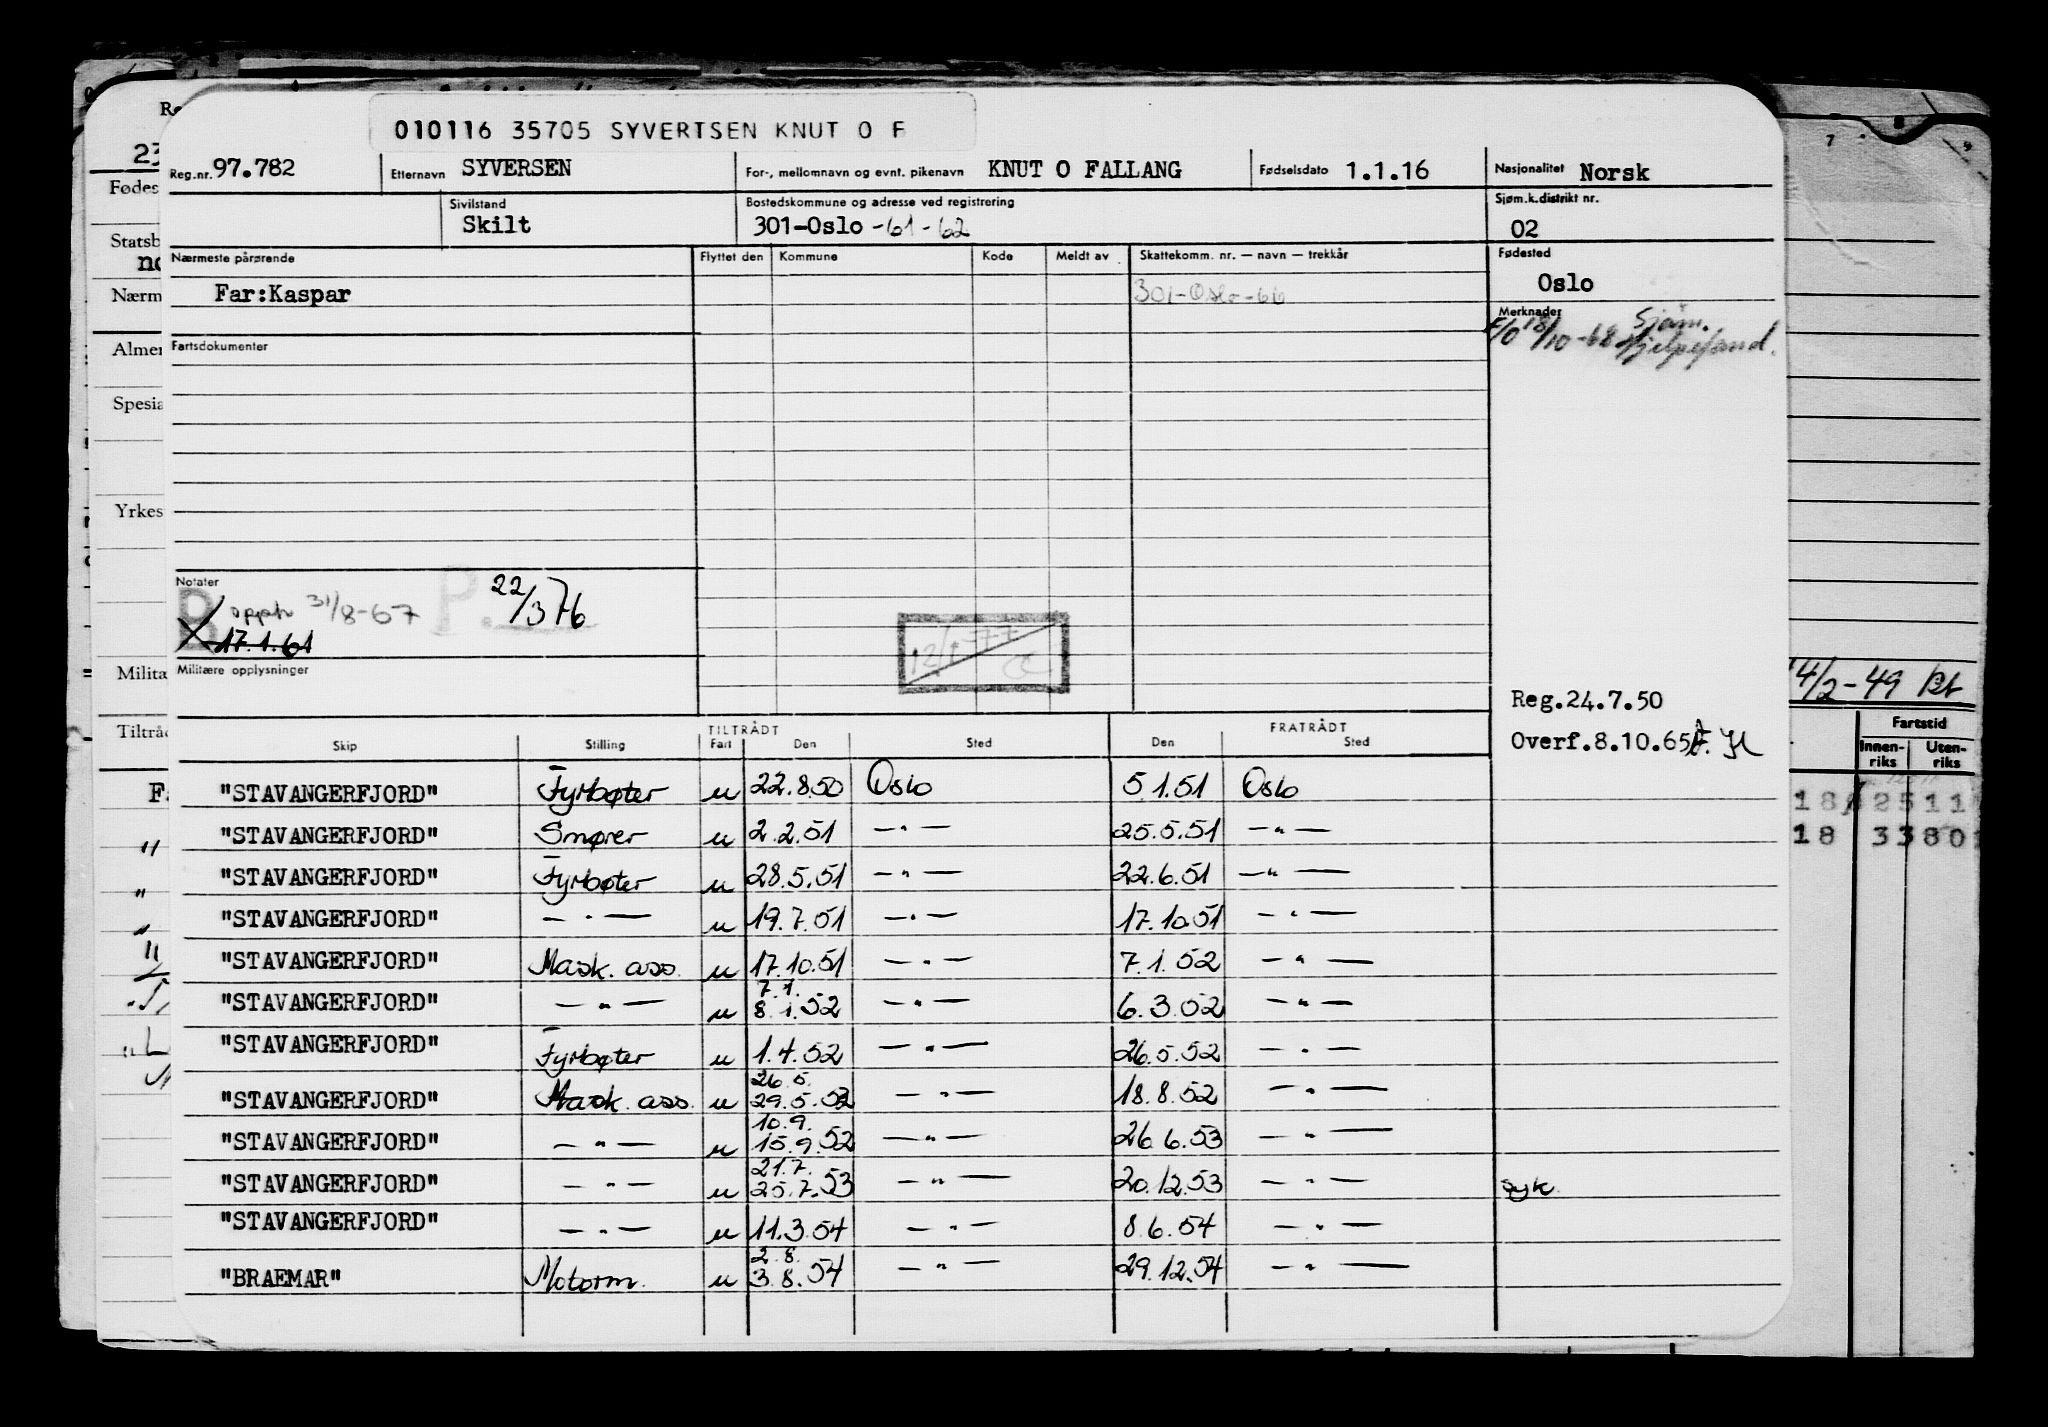 010116 35705 SYVERTSEN KNUT O F
Reg.nr. 97.782 Etternavn SYVERSEN For-, mellomnavn og evnt. pikenavn KNUT O FALLANG Fødselsdato 1.1.16 Nasjonalitet Norsk
Sivilstand Bostedskommune og adresse ved registrering Sjøm.k.distrikt nr.
Skilt 301-Oslo -61-62 02
Nærmeste pårørende Flyttet den Kommune Kode Meldt av Skattekomm. nr. — navn — trekkår Fødested
Far:Kaspar 301-Oslo-66 Oslo
Merknader
F/O 18/10-68 Sjøm.
Hjelpefond.
Fartsdokumenter
Notater
B 31/8-67 P. 22/3 76
17.1.61
12/1-77
Militære opplysninger
Reg.24.7.50
Overf.8.10.65
TILTRÅDT FRATRÅDT
Skip Stilling Fart Den Sted Den Sted
"STAVANGERFJORD" Fyrbøter u 22.8.50 Oslo 5.1.51 Oslo
"STAVANGERFJORD" Smører u 2.2.51 —„— 25.5.51 —„—
"STAVANGERFJORD" Fyrbøter u 28.5.51 —„— 22.6.51 —„—
"STAVANGERFJORD" —„— u 19.7.51 —„— 17.10.51 —„—
"STAVANGERFJORD" Mask. ass. u 17.10.51 —„— 7.1.52 —„—
7.1.
"STAVANGERFJORD" —„— u 8.1.52 —„— 6.3.52 —„—
"STAVANGERFJORD" Fyrbøter u 1.4.52 —„— 26.5.52 —„—
26.5.
"STAVANGERFJORD" Mask. ass. u 29.5.52 —„— 18.8.52 —„—
10.9.
"STAVANGERFJORD" —„— u 15.9.52 —„— 26.6.53 —„—
21.7.
"STAVANGERFJORD" —„— u 25.7.53 —„— 20.12.53 —„— syk.
"STAVANGERFJORD" —„— u 11.3.54 —„— 8.6.54 —„—
2.8.
"BRAEMAR" Motorm. u 3.8.54 —„— 29.12.54 —„—
23
Fødes
Statsb
no
Nærm
Almen
Spesia
Yrkes
Militæ
Tiltråd
14/2-49
Fartstid
Innen-
riks
Uten-
riks
18 2511
18 3380